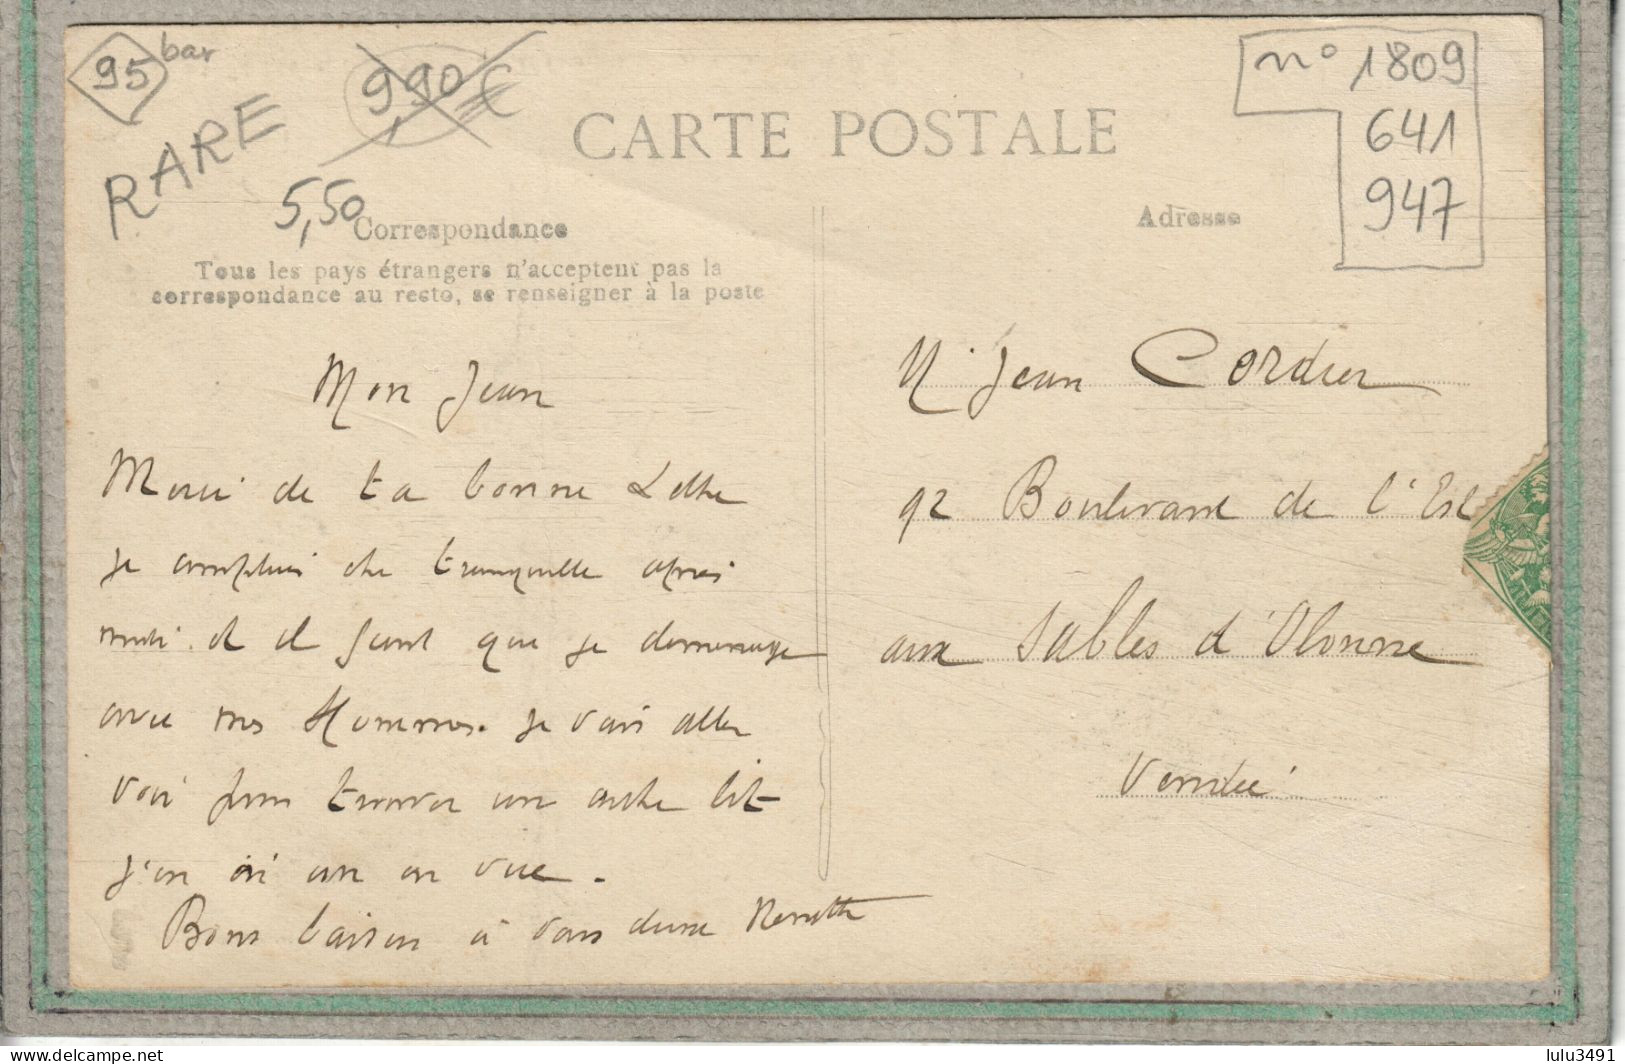 95
bar
9,90€
RARE
5,50
n° 1809
641
947
CARTE POSTALE
Correspondance
Tous les pays étrangers n'acceptent pas la
correspondance au recto, se renseigner à la poste
Adresse
Mon Jean
Merci de ta bonne Lettre
je tranquille après
midi. et il faut que je demenage
avec mes Hommes. je vais aller
voir pour trouver un autre lit
j'en ai un en vue.
Bons baisers à vous deux
M. Jean Cordier
92 Boulevard de l'Est
aux Sables d'Olonne
Vendée
lulu3491